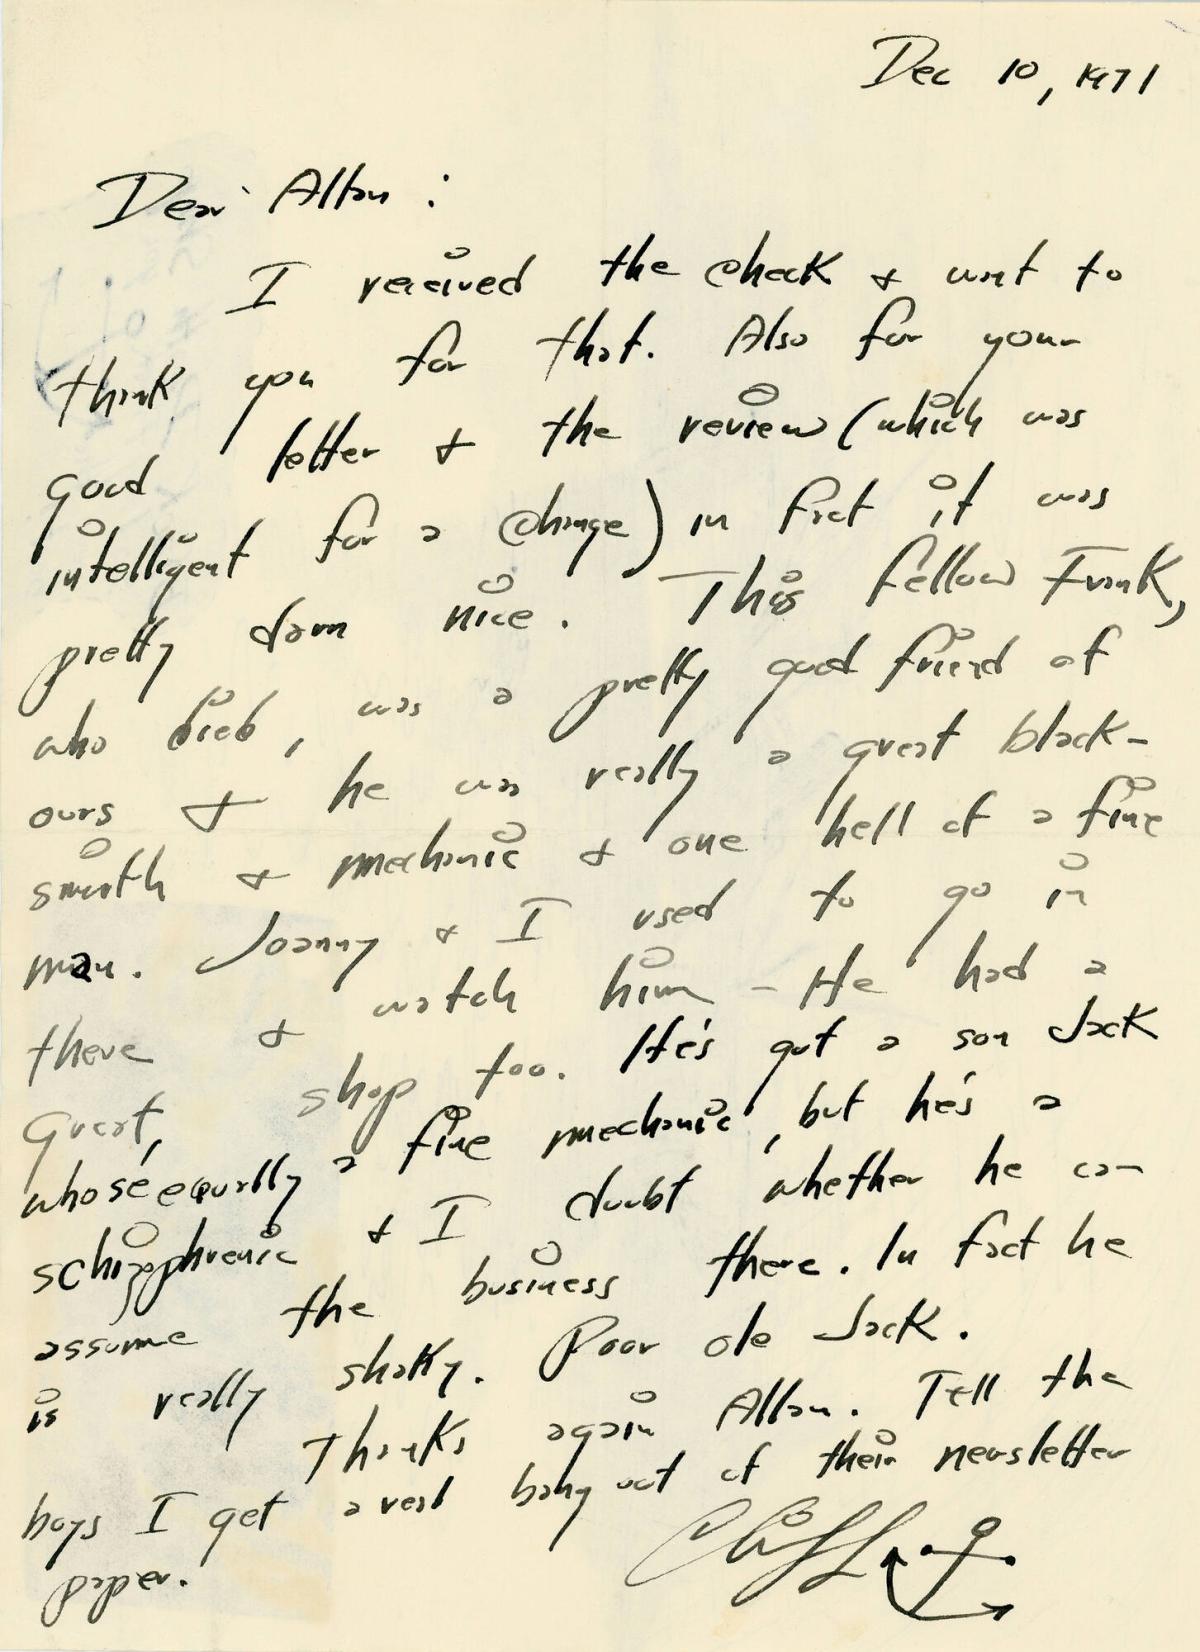 Dec 10, 1971
Dear Allan :
I received the check & want to
thank you for that. Also for your
good letter & the review (which was
intelligent for a change) in fact it was
pretty darn nice. This fellow Frank,
who died, was a pretty good friend of
ours & he was really a great black-
smith & mechanic & one hell of a fine
man. Joanny & I used to go in
there & watch him - He had a
great shop too. He's got a son Jack
whose equally a fine mechanic, but he's a
schizophrenic & I doubt whether he can
assume the business there. In fact he
is really shaky. Poor ole Jack.
Thanks again Allan. Tell the
boys I get a real bang out of their newsletter
paper.
Cliff